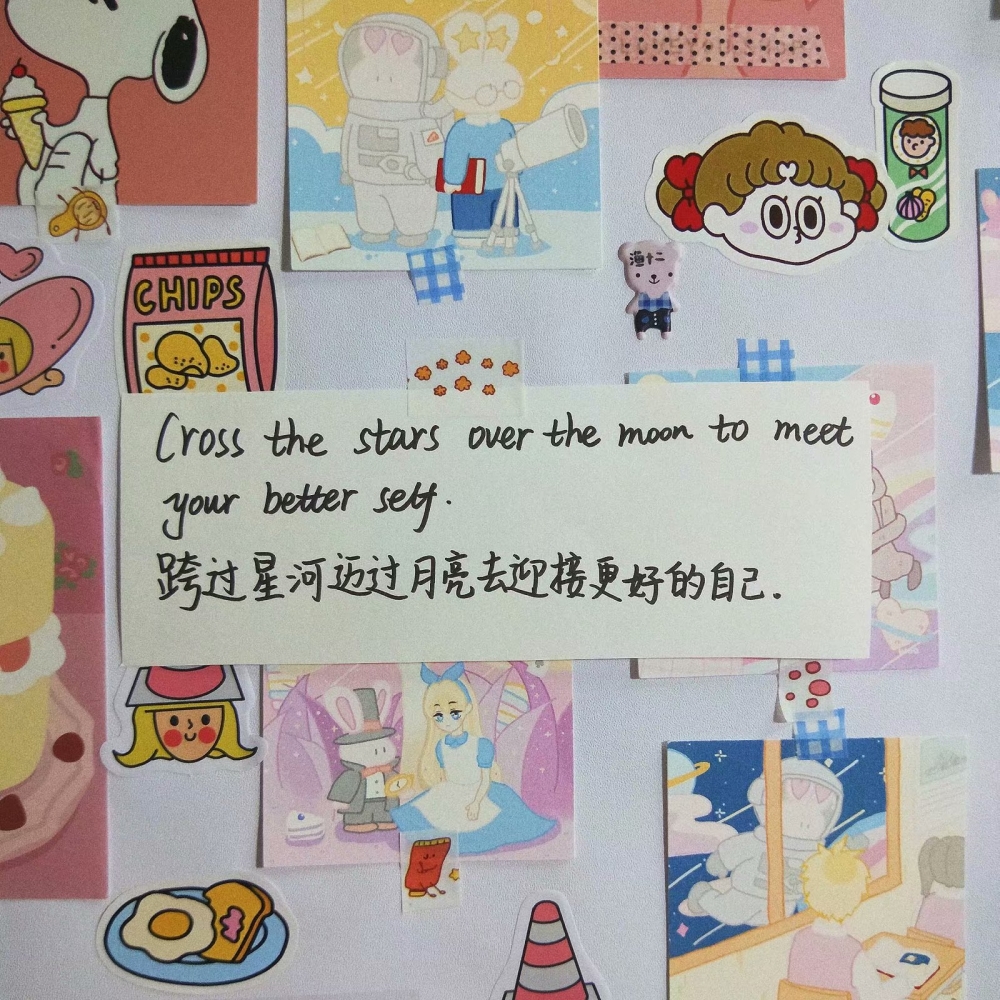 CHIPS
Cross the stars over the moon to meet
your better self.
跨过星河迈过月亮去迎接更好的自己.